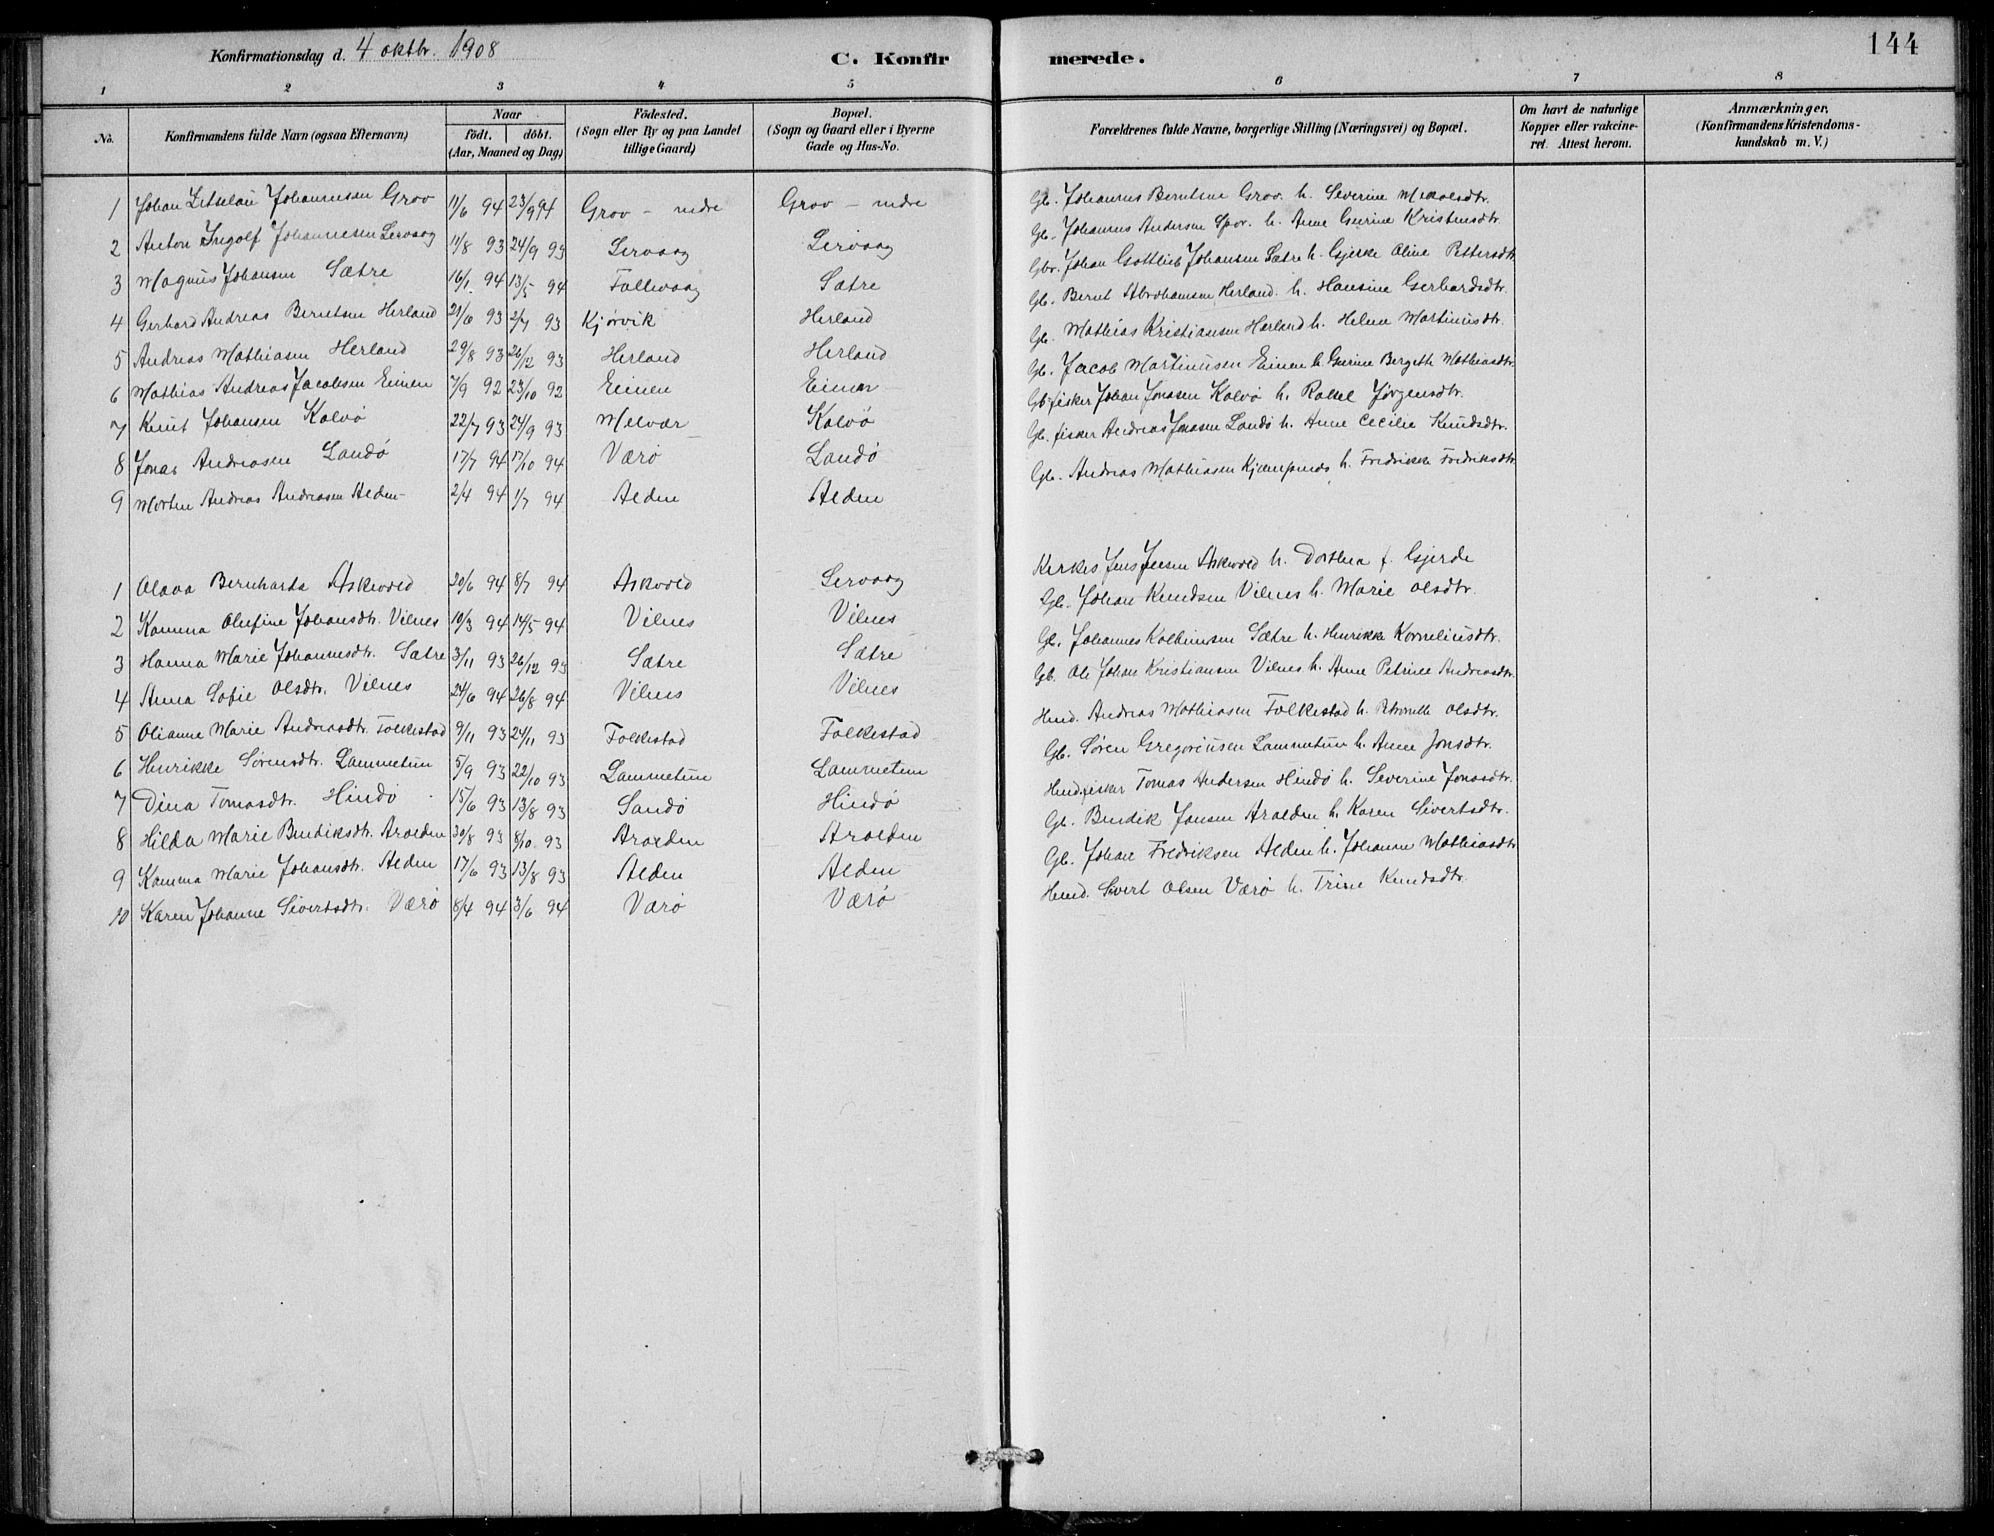 Konfirmationsdag d. 4 oktbr. 1908
C. Konfirmerede.
144
1 2 3 4 5 6 7 8
No.
Konfirmandens fulde Navn (ogsaa Efternavn)
Naar
födt. döbt.
(Aar, Maaned og Dag)
Födested.
(Sogn eller By og paa Landet
tillige Gaard)
Bopæl.
(Sogn og Gaard eller i Byerne
Gade og Hus-No.
Forældrenes fulde Navne, borgerlige Stilling (Næringsvei) og Bopæl.
Om havt de naturlige
Kopper eller vakcine-
ret. Attest herom.
Anmærkninger.
(Konfirmandens Kristendoms-
kundskab m. V.)
1 Johan Johannesen Grov 11/6 94 23/9 94 Grov – nedre Grov – nedre Gb. Johannes Berntsen Grov. h. Severine
2 Anton Ingolf Johannesen Lervaag 11/8 93 24/9 93 Lervaag Lervaag Gb. Johannes Andersen Spor. h. Anne Gurine Kristensdtr.
3 Magnus Johansen Sætre 16/1. 94 13/5 94 Sætre Gbr. Johan Gottlieb Johansen Sætre h. Gjeske Oline Pettersdtr.
4 Gerhard Andreas Berntsen Herland 21/6 93 2/7 93 Kjørvik Herland Gb. Bernt Abrahamsen Herland. h. Hansine Gerhardsdtr.
5 Andreas Mathiasen Herland 29/8 93 26/12 93 Herland Herland Gb. Mathias Kristiansen Herland h. Helene Martinusdtr.
6 Mathias Andreas Jacobsen Einen 7/9 92 23/10 92 Einen Einen Gb. Jacob Martinusen Einen h. Gurine Bergeth Mathiasdtr.
7 Knut Johansen Kalvø 22/7 93 24/9 93 Melvær Kalvø Gb. fisker Johan Jonasen Kalvø h. Rakel Jørgensdtr.
8 Jonas Andreasen Landø 17/7 94 17/10 94 Værø Landø Gb. fisker Andreas Jonasen Landø h. Anne Cecilie Knudsdtr.
9 Morten Andreas Andreasen Alden 2/4 94 1/7 94 Alden Alden Gb. Andreas Mathiasen h. Fredrikke Fredriksdtr.
1 Olava Bernharda Askevold 20/6 94 8/7 94 Askvold Lervaag Kirkes. Jens Jensen Askevold h. Dorthea f. Gjerde
2 Kamma Olufine Johansdtr. Vilnes 10/3 94 14/5 94 Vilnes Vilnes Gb. Johan Knudsen Vilnes h. Marie Olsdtr.
3 Hanna Marie Johannesdtr. Sætre 3/11 93 26/12 93 Sætre Sætre Gb. Johannes Kolbeinsen Sætre h. Henrikke Kornelíusdtr.
4 Anna Sofie Olsdtr. Vilnes 24/6 94 26/8 94 Vilnes Vilnes Gb. Ole Johan Kristiansen Vilnes h. Anne Petrine Andreasdtr.
5 Olianne Marie Andreasdtr. Folkestad 9/11 93 24/11 93 Folkestad Folkestad Husd. Andreas Mathiasen Folkestad h. Petronelle Olsdtr.
6 Henrikke Sørensdtr. Lammetun 5/9 93 22/10 93 Lammetun Lammetun Gb. Søren Gregoriusen Lammetun h. Anne Jonsdtr.
7 Dina Tomasdtr. Hindø 15/6 93 13/8 93 Sandø Hindø Husd. fisker Tomas Andersen Hindø h. Severine Jonasdtr.
8 Hilda Marie Bendiksdtr. Aralden 30/8 93 8/10. 93 Aralden Aralden Gb. Bendik Jonsen Aralden h. Karen Sivertsdtr.
9 Kamma Marie Johansdtr. Alden 17/6 93 13/8 93 Alden Alden Gb. Johan Fredriksen Alden h. Johanne Mathiasdtr.
10 Karen Johanne Sivertsdtr. Værø 8/4 94 3/6 94 Værø Værø Husd. Sivert Olsen Værø h. Trine Knudsdtr.